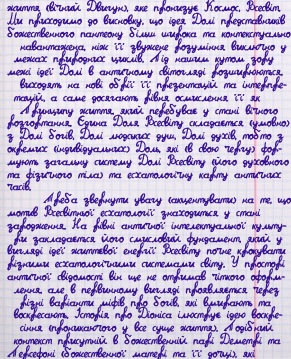 життя, (вічний Двигун), яке пронизує Космос, Всесвіт.
Ми приходимо до висновку, що ідея Долі представників
божественного пантеону більш широка та контекстуально
навантажена, ніж її звужене розуміння виключно у
межах природних циклів. Під нашим кутом зору
межі ідеї Долі в античному світогляді розширюються,
виходять на нові обрії її презентацій та інтерпре-
тацій, а саме досягають рівня осмислення її як
Принципу життя, який перебуває у стані вічного
розгортання. Єдина Доля Всесвіту складається (умовно)
з Долі богів, Долі людських душ, Долі духів, тобто з
окремих (індивідуальних) Доль, які (в свою чергу) фор-
мують загальну систему Долі Всесвіту (його духовного
та фізичного тіла) та есхатологічну карту античних
часів.
Треба звернути увагу (акцентувати) на те, що
мотив Всесвітньої есхатології знаходиться у стані
зародження. На рівні античної інтелектуальної культу-
ри закладається його смисловий фундамент, який у
вигляді ідеї життєвої енергії Всесвіту почне крокувати
різними есхатологічними системами світу. У просторі
античної свідомості він ще не отримав чіткого оформ-
лення, але в первинному вигляді проявляється через
різні варіанти міфів про богів, які вмирають та
воскресають. Історія про Діоніса ілюструє ідею воскре-
сіння (проникаючого у все суще життя). Подібний
контекст присутній в божественній парі Деметри та
Персефони (божественної матері та її дочці), які